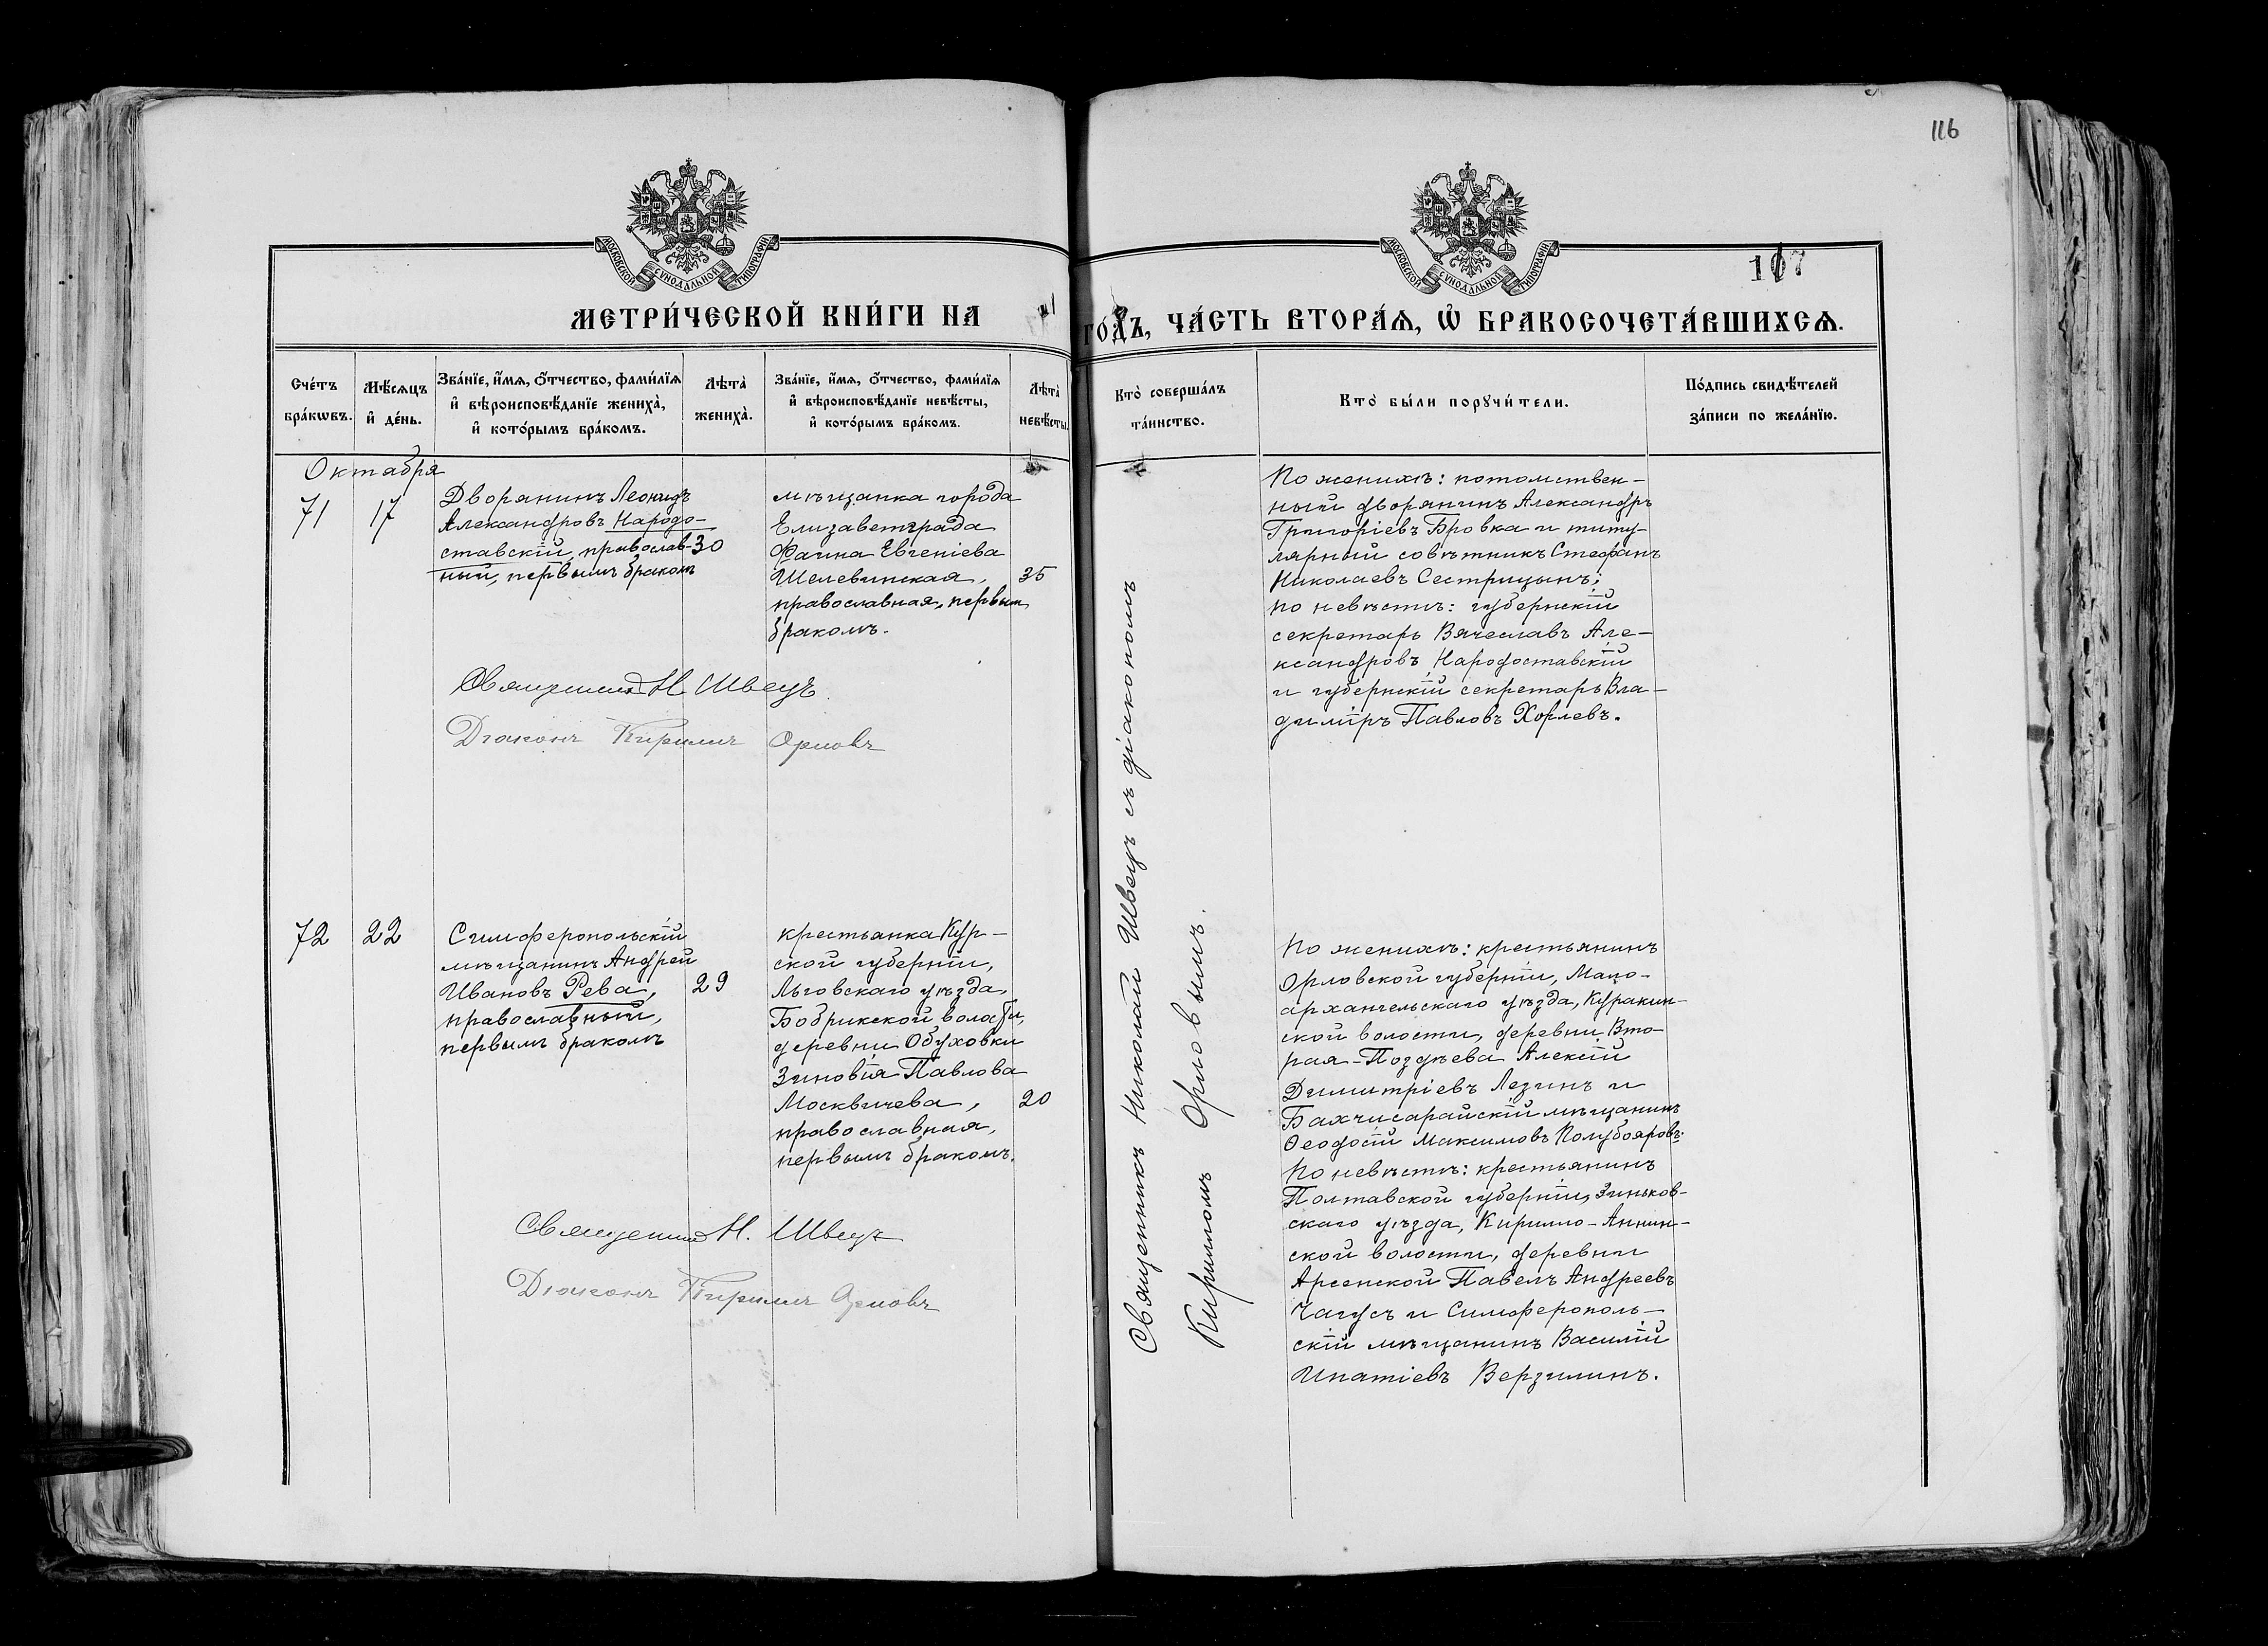 116
МОСКОВСКОЙ СѴНОДАЛЬНОЙ ТИПОГРАФІИ
МОСКОВСКОЙ СѴНОДАЛЬНОЙ ТИПОГРАФІИ
МЕТРИ́ЧЕСКОЙ КНИ́ГИ НА
ГО́ДЪ, ЧА́СТЬ ВТОРА́Ѧ, Ѽ БРАКОСОЧЕТА́ВШИХСѦ.
Сче́тъ бра́кѡвъ.
Мѣ́сѧцъ и҆ де́нь.
Зва́нїе, и҆́мѧ, ѻ҆́тчество, фами́лїѧ и҆ вѣроисповѣ́данїе жениха̀, и҆ кото́рымъ бра́комъ.
Лѣта̀ жениха̀.
Зва́нїе, и҆́мѧ, ѻ҆́тчество, фами́лїѧ и҆ вѣроисповѣ́данїе невѣ́сты, и҆ кото́рымъ бра́комъ.
Лѣта̀ невѣ́сты.
Кто̀ соверша́лъ та́инство.
Кто̀ бы́ли порꙋчи́тели.
По́дпись свидѣ́телей за́писи по жела́нїю.
Октября
71
17
Дворянинъ Леонидъ
Александровъ Народо-
ставскій, православ-
ный, первымъ бракомъ
30
мѣщанка города
Елизаветграда
Фаина Евгеніева
Шелевинская,
православная, первым
бракомъ.
35
Священник Н. Швецъ
Діаконъ Кириллъ Орловъ
По женихѣ: потомствен-
ный дворянинъ Александръ
Григоріевъ Бровка и титу-
лярный совѣтникъ Стефанъ
Николаевъ Сестрицынъ;
по невѣстѣ: губернскій
секретарь Вячеславъ Але-
ксандровъ Народоставскій
и губернскій секретарь Вла-
диміръ Павловъ Хорлевъ.
Священникъ Николай Швецъ съ діакономъ
Кирилломъ Орловымъ.
72
22
Симферопольскій
мѣщанинъ Андрей
Ивановъ Рева,
православный,
первымъ бракомъ
29
крестьянка Кур-
ской губерніи,
Льговскаго уѣзда,
Бобрикской волости,
деревни Обуховки
Зиновія Павлова
Москвичева,
православная,
первымъ бракомъ.
20
Священник Н. Швецъ
Діаконъ Кириллъ Орловъ
По женихѣ: крестьянинъ
Орловской губерніи, Мало-
архангельскаго уѣзда, Куракин-
ской волости, деревни Вто-
рая-Поздѣева Алексій
Димитріевъ Лезинъ и
Бахчисарайскій мѣщанинъ
Ѳеодосій Максимовъ Полубояровъ.
По невѣстѣ: крестьянинъ
Полтавской губерніи, Зиньков-
скаго уѣзда, Кирилло-Аннин-
ской волости, деревни
Арсенской Павелъ Андреевъ
Чагусъ и Симферополь-
скій мѣщанинъ Василій
Ипатіевъ Верзилинъ.